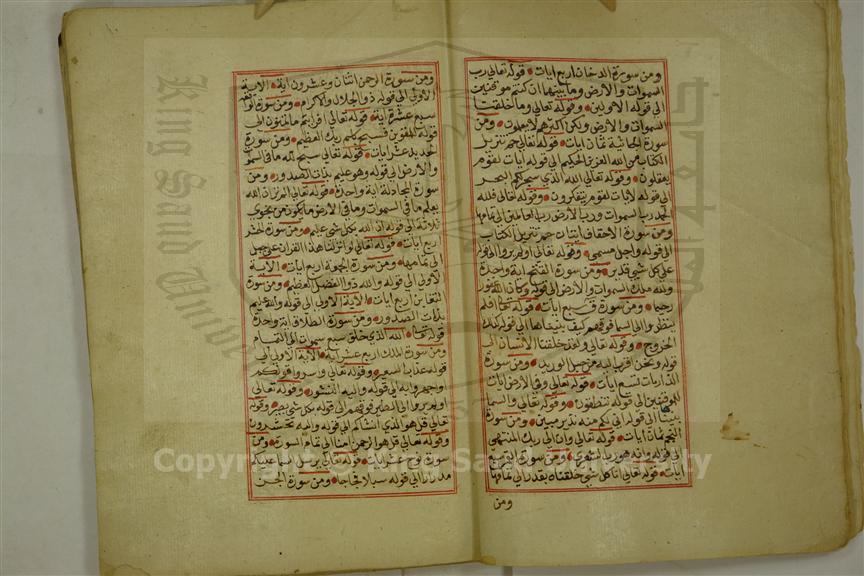 ومن سورة الدخان اربع ايات قوله تعالى رب
السموات والارض وما بينهما ان كنتم موقنين
الى قوله الاولين وقوله تعالى وما خلقنا
السموات والارض ولكن اكثرهم لا يعلمون ومن
سورة الجاثية ثمان ايات قوله تعالى حم تنزيل
الكتاب من الله العزيز الحكيم الى قوله ايات لقوم
يعقلون وقوله تعالى الله الذي سخر لكم البحر
الى قوله لايات لقوم يتفكرون وقوله تعالى فلله
الحمد رب السموات ورب الارض رب العالمين الى تمامها
ومن سورة الاحقاف ايتان حم تنزيل الكتاب
الى قوله واجل مسمى وقوله تعالى اولم يروا الى قوله
على كل شي قدير ومن سورة الفتح اية واحدة
ولله ملك السموات والارض الى قوله وكان الله غفورا
رحيما ومن سورة ق ايات قوله تعالى افلم
ينظروا الى السما فوقهم كيف بنيناها الى قوله كذلك
الخروج وقوله تعالى ولقد خلقنا الانسان الى
قوله ونحن اقرب اليه من حبل الوريد ومن سورة
الذاريات تسع ايات قوله تعالى وفي الارض ايات
للموقنين الى قوله تنطقون وقوله تعالى والسما
بنيناها الى قوله اني لكم منه نذير مبين ومن سورة
النجم ثمان ايات قوله تعالى وان الى ربك المنتهى
الى قوله وانه هو رب الشعرى ومن سورة القمر
ايات قوله تعالى انا كل شي خلقناه بقدر الى تمامها
ومن
ومن سورة الرحمن اثنتان وعشرون اية الاية
الاولى الى قوله ذو الجلال والاكرام ومن سورة الواقعة
سبع عشرة اية قوله تعالى افرايتم ما تمنون الى
قوله للمقوين فسبح باسم ربك العظيم ومن سورة
الحديد عشر ايات قوله تعالى سبح لله ما في السموات
والارض الى قوله وهو عليم بذات الصدور ومن
سورة المجادلة اية واحدة قوله تعالى الم تر ان الله
يعلم ما في السموات وما في الارض ما يكون من نجوى
ثلاثة الى قوله ان الله بكل شي عليم ومن سورة الحشر
اربع ايات قوله تعالى لو انزلنا هذا القران على جبل
الى تمامها ومن سورة الجمعة اربع ايات الاية
الاولى الى قوله والله ذو الفضل العظيم ومن سورة
التغابن اربع ايات الاية الاولى الى قوله والله عليم
بذات الصدور ومن سورة الطلاق اية واحدة
قوله تعالى الله الذي خلق سبع سموات الى التمام
ومن سورة الملك اربع عشر اية الاية الاولى الى
قوله عذاب السعير وقوله تعالى واسروا قولكم
او اجهروا به الى قوله واليه النشور وقوله تعالى
اولم يروا الى الطير فوقهم الى قوله بكل شي بصير وقوله
تعالى قل هو الذي انشاكم الى قوله واليه تحشرون
وقوله تعالى قل هو الرحمن امنا الى تمام السورة ومن
سورة نوح عشر اية قوله تعالى يرسل السما عليكم
مدرارا الى قوله سبلا فجاجا ومن سورة الجن
King Saud University
Copyright © King Saud University